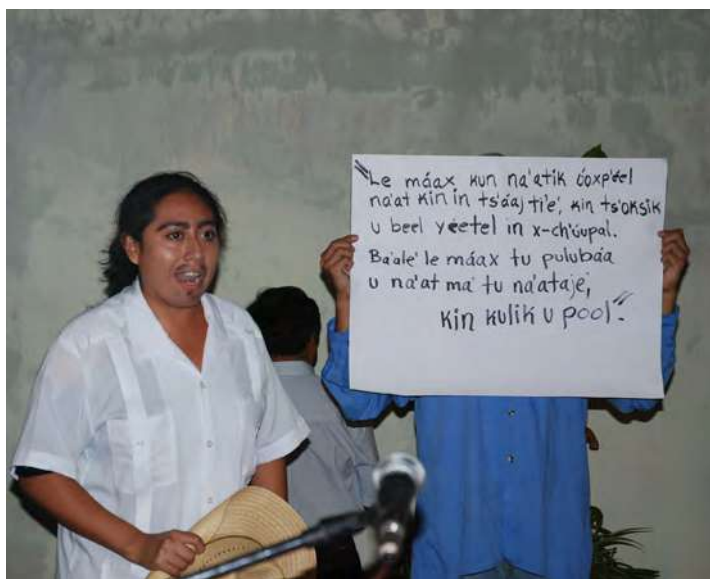 "Le máax kun na'atik óoxp'éel
na'at kin in ts'áaj ti'e', kin ts'oksik
u beel yéetel in x-ch'úupal.
Ba'ale' le máax tu pulubáa
u na'at ma' tu na'ataje',
kin kulik u pool".